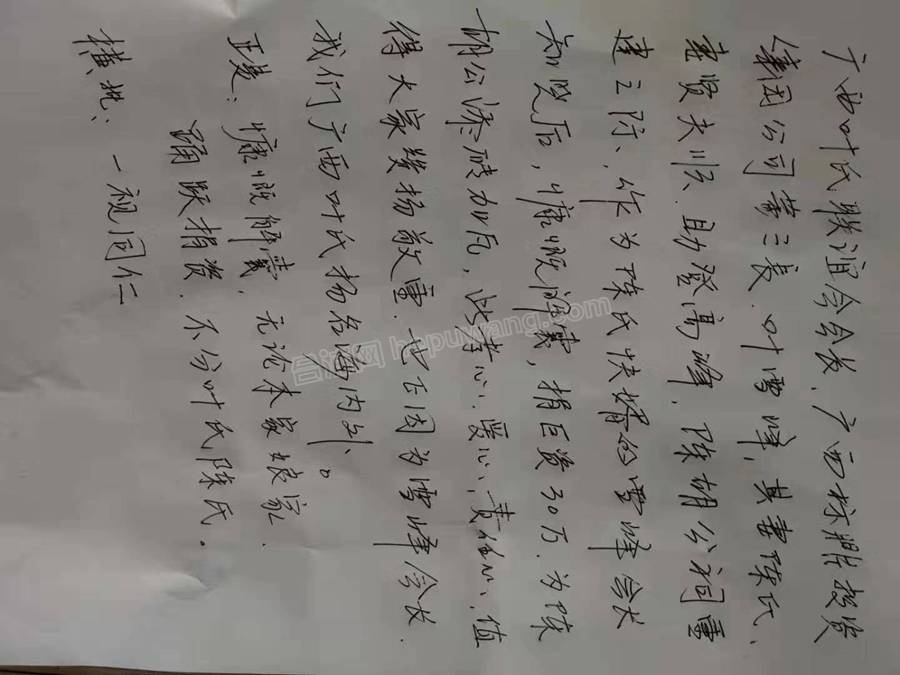 广西叶氏联谊会会长，广西标牌投资
集团公司董事长，叶雪峰，其妻陈氏、
妻贤夫顺、助登高峰，陈胡公祠重
建之际，作为陈氏快婿的雪峰会长
知晓后，慷慨解囊，捐巨资30万，为陈
胡公添砖加瓦，此孝心、爱心、责任心、值
得大家发扬敬重。也正因为雪峰会长．
我们广西叶氏扬名海内外。
正楚：慷慨解囊，无论本家娘家．
踊跃捐资．不分叶氏陈氏。
横批：一视同仁
合谱网 hepuwang.com